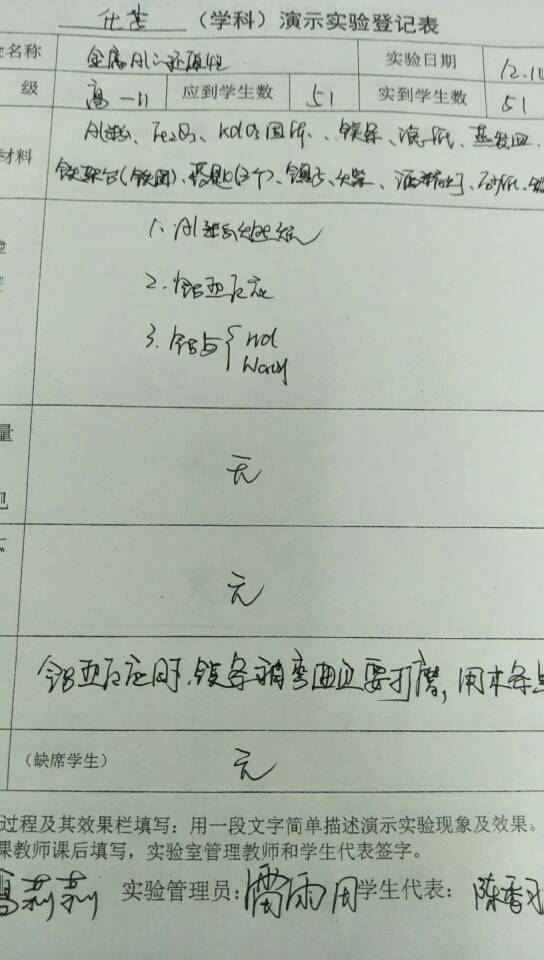 化学（学科）演示实验登记表
名称 金属Al的还原性 实验日期 12.11
级 高一11 应到学生数 51 实到学生数 51
材料 Al粉、Fe₂O₃、KClO₃固体、镁条、滤纸、蒸发皿、
铁架台(铁圈)、(2个)、镊子、火柴、酒精灯、砂纸、
1. Al
2. 铝热反应
3. 铝与{HCl
NaOH
量
无
无
铝热反应时,镁条稍弯曲且要打磨,用木条
（缺席学生） 无
过程及其效果栏填写：用一段文字简单描述演示实验现象及效果。
课教师课后填写，实验室管理教师和学生代表签字。
莉莉 实验管理员: 雷雨田 学生代表: 陈香